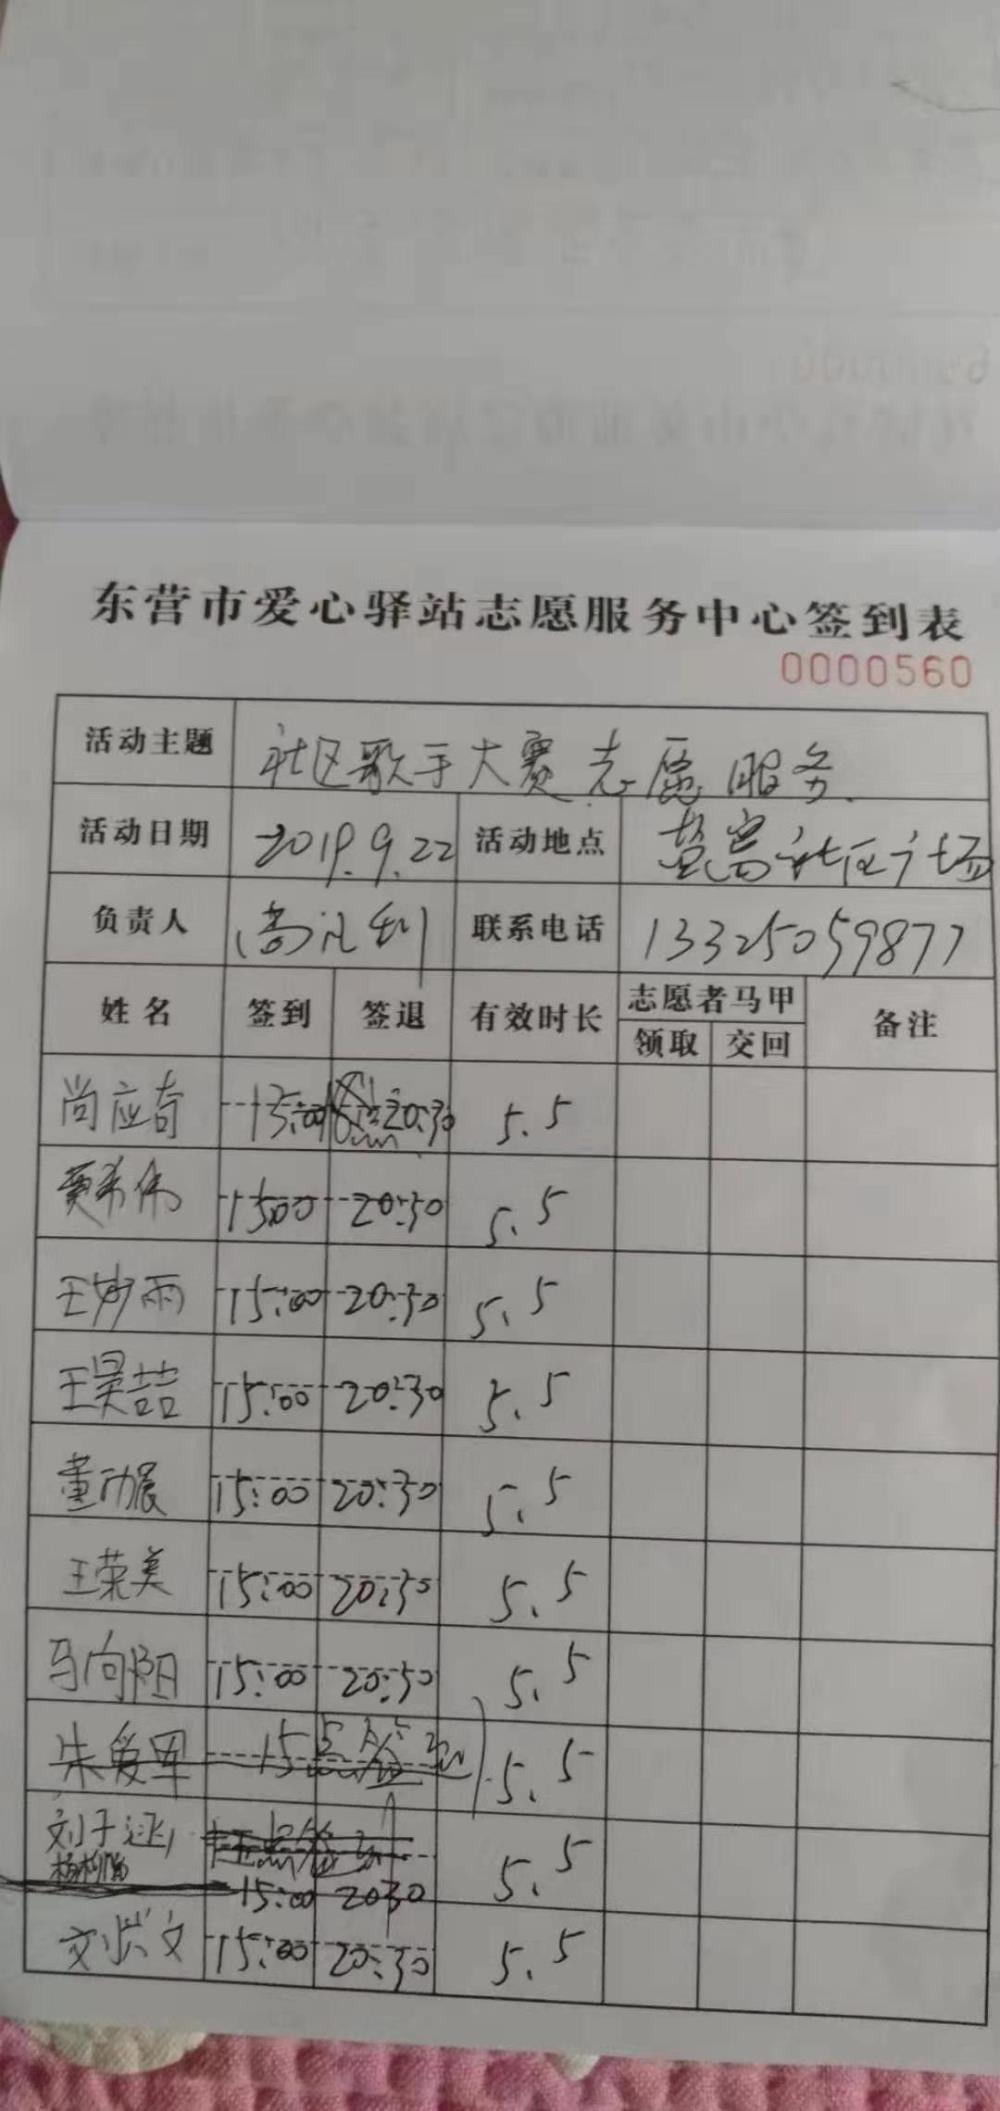 东营市爱心驿站志愿服务中心签到表
0000560
活动主题 社区歌手大赛志愿服务
活动日期 2019.9.22 活动地点 盐窝社区广场
负责人 联系电话 13325059877
姓名 签到 签退 有效时长 志愿者马甲 备注
领取 交回
尚应奇 15:00 20:30 5.5
贾希伟 15:00 20:30 5.5
王妙雨 15:00 20:30 5.5
王昊喆 15:00 20:30 5.5
董 晨 15:00 20:30 5.5
王荣美 15:00 20:30 5.5
马向阳 15:00 20:30 5.5
朱爱军 15 5.5
刘子 5.5
15:00 2030
刘洪文 15:00 20:30 5.5